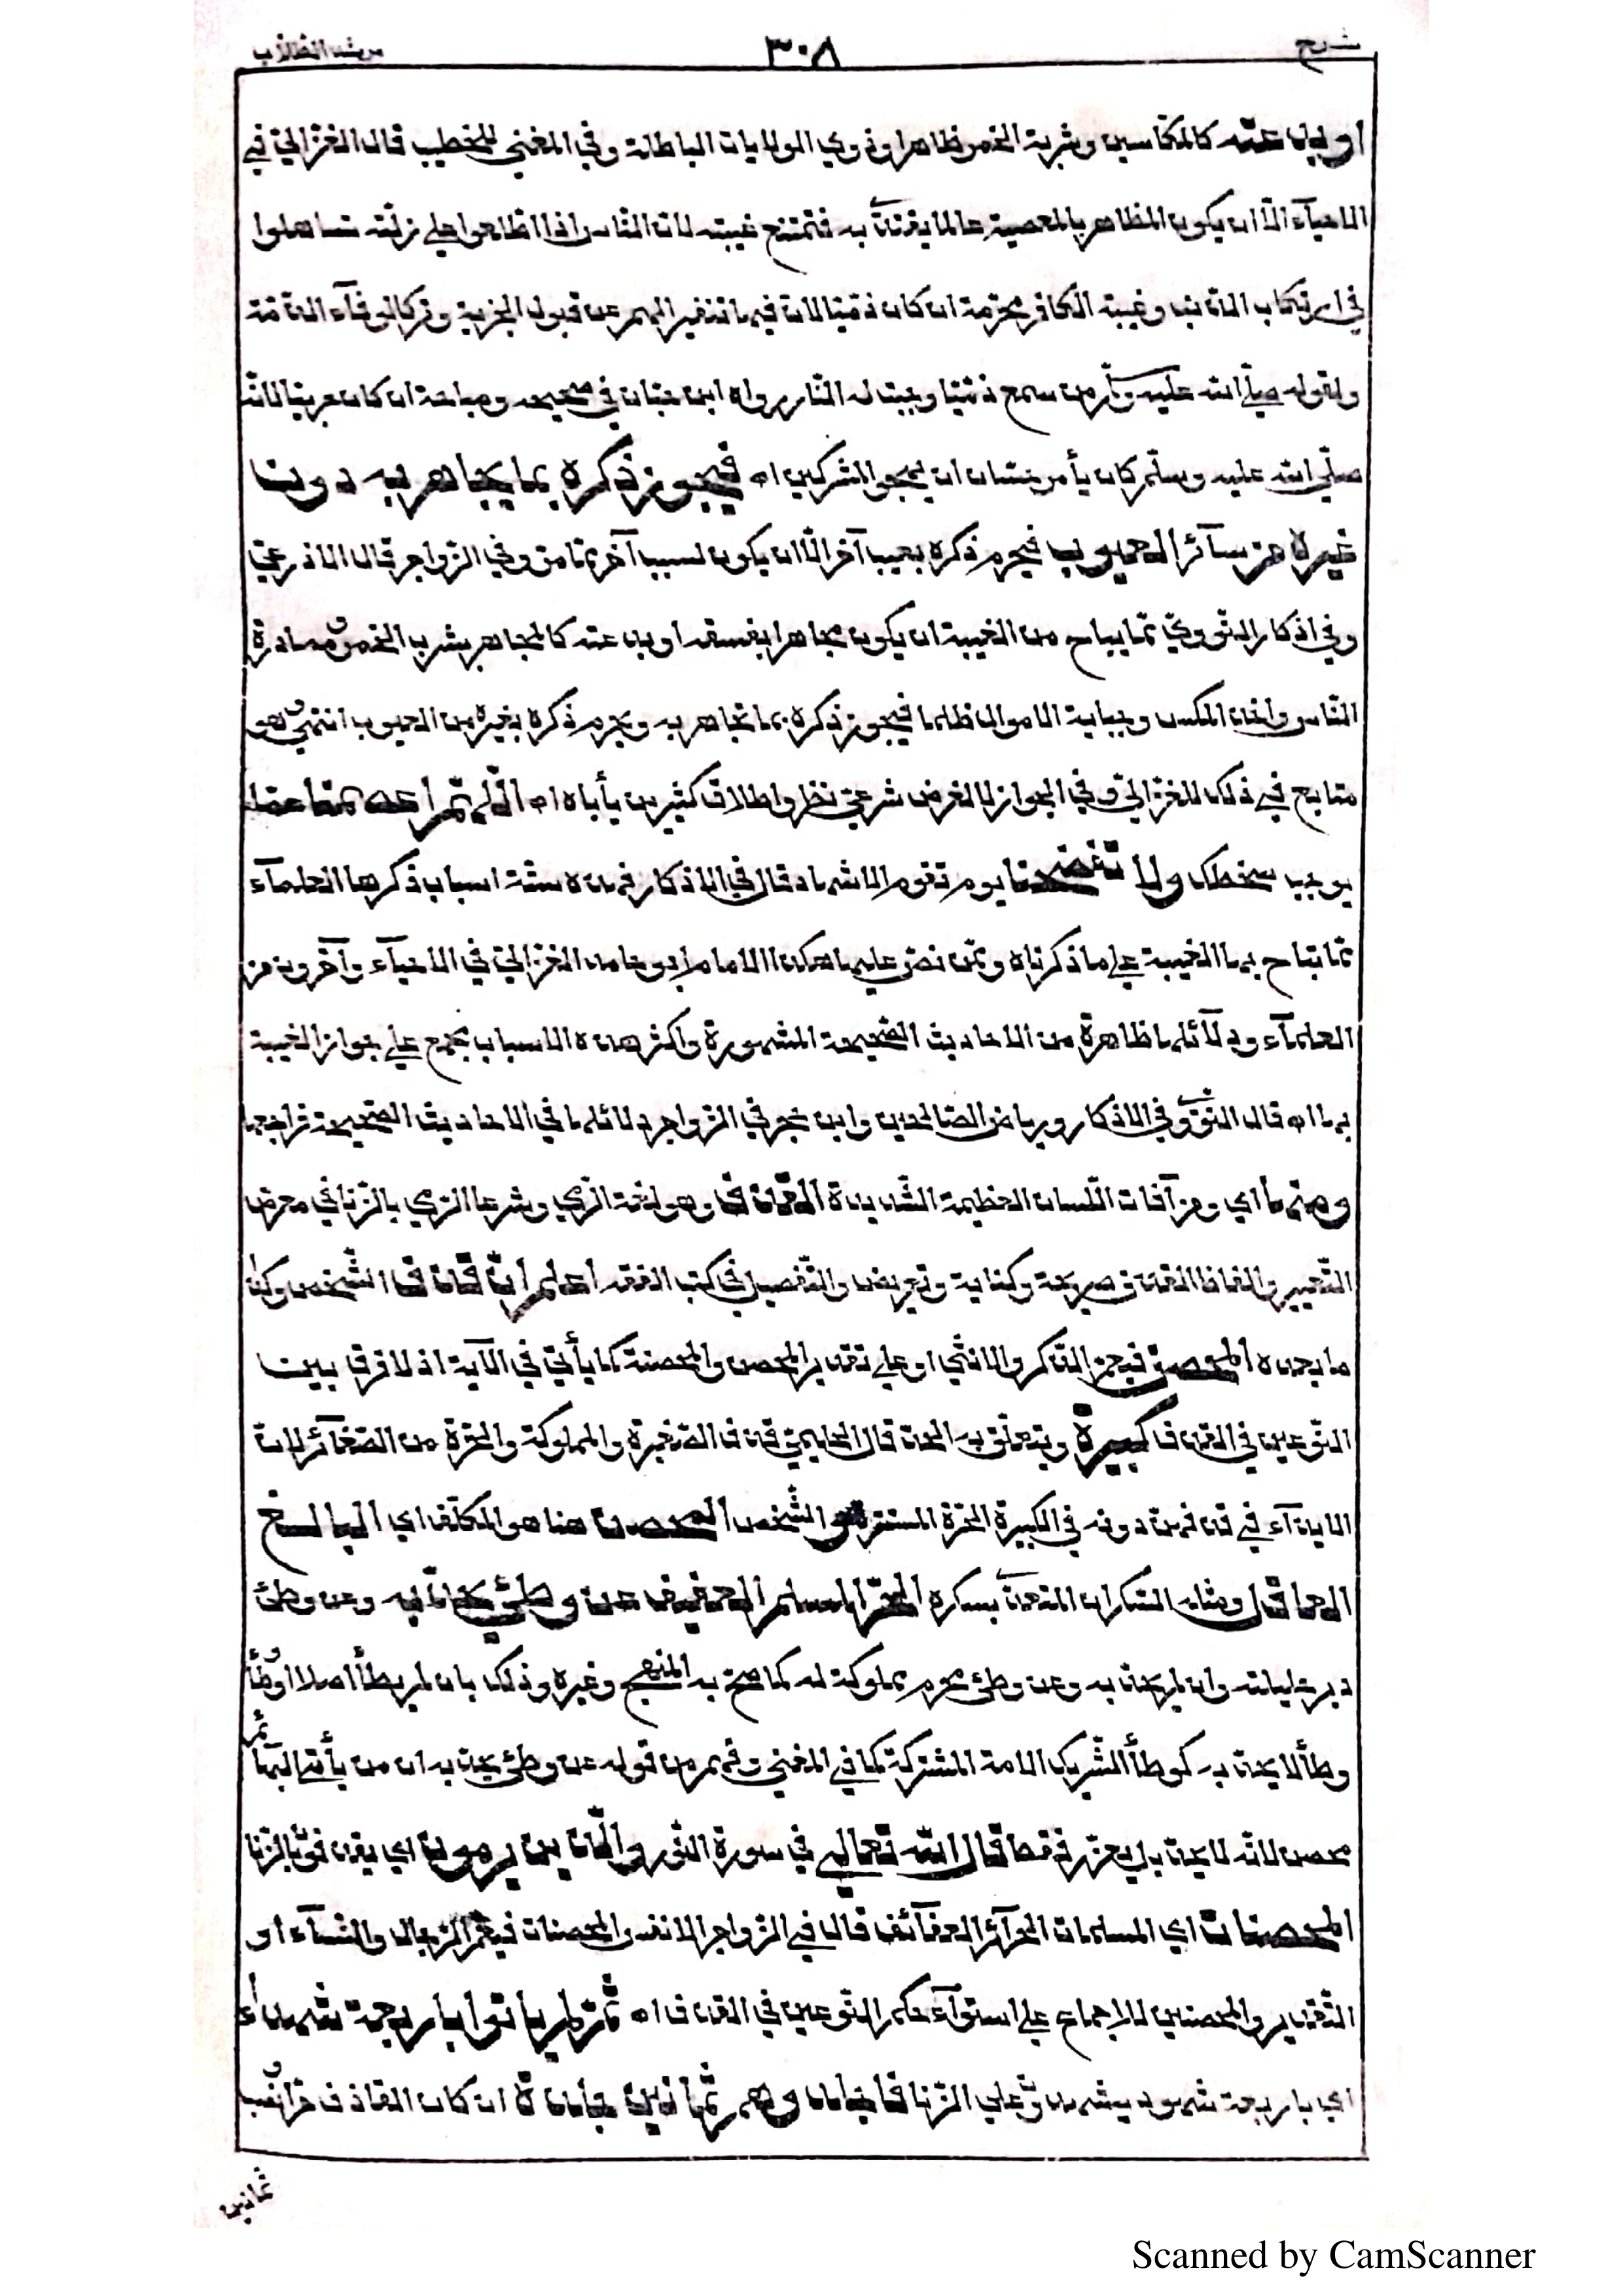 شرح ٣٠٨ مرشد الطلاب
او بدعته كالمكاسين وشربة الخمر ظاهرا وذوي الولايات الباطلة وفي المغني للخطيب قال الغزالي في
الاحيآء الّا ان يكون المظاهر بالمعصية عالما يقتدى به فتمتنع غيبته لان النّاس اذا اطّلعوا على زلّته تساهلوا
في ارتكاب الذنب وغيبة الكافر محرّمة ان كان ذمّيّا لان فيها تنفيرا لهم عن قبول الجزية وتركا لوفآء الذّمّة
ولقوله صلّى الله عليه وسلّم من سمع ذمّيّا وجبت له النّار رواه ابن حبّان في صحيحه ومباحة ان كان حربيّا لانّه
صلّى الله عليه وسلّم كان يأمر حسّان ان يهجو المشركين اه فيجوز ذكره بما يجاهر به دون
غيره من سآئر العيوب فيحرم ذكره بعيب آخر الّا ان يكون لسبب آخر ممّا مرّ وفي الزّواجر قال الاذرعيّ
وفي اذكار النّوويّ ممّا يباح من الغيبة ان يكون مجاهرا بفسقه او بدعته كالمجاهر بشرب الخمر ومصادرة
النّاس واخذ المكس وجباية الاموال ظلما فيجوز ذكره بما تجاهر به ويحرم ذكره بغيره من العيوب انتهى وهو
متابع في ذلك للغزاليّ وفي الجواز لا لغرض شرعيّ نظر واطلاق كثيرين يأباه اه اللّهمّ اعصمنا عمّا
يوجب سخطك ولا تفضحنا يوم تقوم الاشهاد قال في الاذكار فهذه ستّة اسباب ذكرها العلمآء
ممّا تباح بها الغيبة على ما ذكرناه وممّن نصّ عليها هكذا الامام ابو حامد الغزاليّ في الاحيآء وآخرون من
العلمآء ودلآئلها ظاهرة من الاحاديث الصّحيحة المشهورة واكثر هذه الاسباب مجمع على جواز الغيبة
بها اه قال النّوويّ في الاذكار ورياض الصّالحين وابن حجر في الزّواجر دلائلها في الاحاديث الصّحيحة فراجعها
ومنها اي ومن آفات اللّسان العظيمة الشّديدة القذف وهو لغة الرّمي وشرعا الرّمي بالزّنا في معرض
التّعيير والفاظ القذف صريحة وكناية وتعريض والتّفصيل في كتب الفقه اعلم انّ قذف الشّخص وكذا
ما بعده المحصن فيعمّ الذّكر والانثى او على تقدير المحصن والمحصنة كما يأتي في الآية اذ لا فرق بين
النّوعين في القذف كبيرة ويتعلّق به الحدّ قال الحليميّ قذف الصّغيرة والمملوكة والحرّة من الصّغآئر لانّ
الايذآء في قذفهنّ دونه في الكبيرة الحرّة المستترة والشّخص المحصن هنا هو المكلّف اي البالغ
العاقل ومثله السّكران المتعدّي بسكره الحرّ المسلم العفيف عن وطئ يحدّ به وعن وطئ
دبر حليلته وان لم يحدّ به وعن وطئ محرم مملوكة له كما صحّ به المنهج وغيره وذلك بان لم يطأ اصلا او وطأ
وطأ لا يحدّ به كوطأ الشّريك الامة المشتركة كما في المغني وفهم من قوله عن وطئ يحدّ به ان من يأتي البهآئم
محصن لانّه لا يحدّ بل يعزّر فقط قال الله تعالى في سورة النّور والّذين يرمون اي يقذفون بالزّنا
المحصنات اي المسلمات الحرآئر العفآئف قال في الزّواجر الانفس المحصنات فيعمّ الرّجال والنّسآء او
التّقدير والمحصنين للاجماع على استوآء حكم النّوعين في القذف اه ثمّ لم يأتوا باربعة شهدآء
اي باربعة شهود يشهدون على الزّنا فاجلدوهم ثمانين جلدة ان كان القاذف حرّا فيجب
ثمانين
Scanned by CamScanner